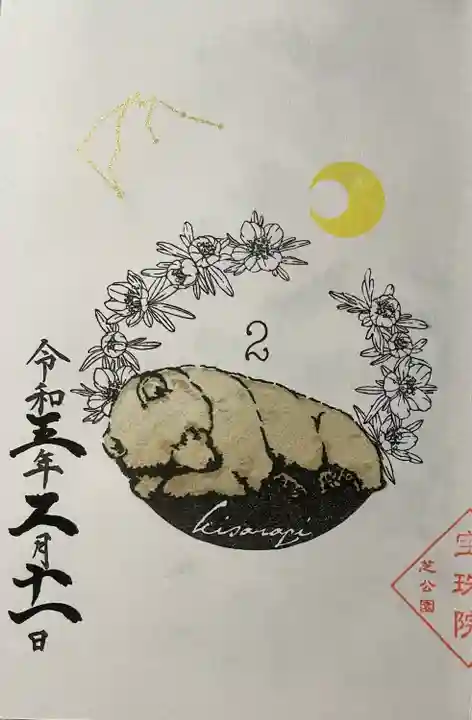 2
令和五年二月十一日
kisaragi
宝珠院
芝公園